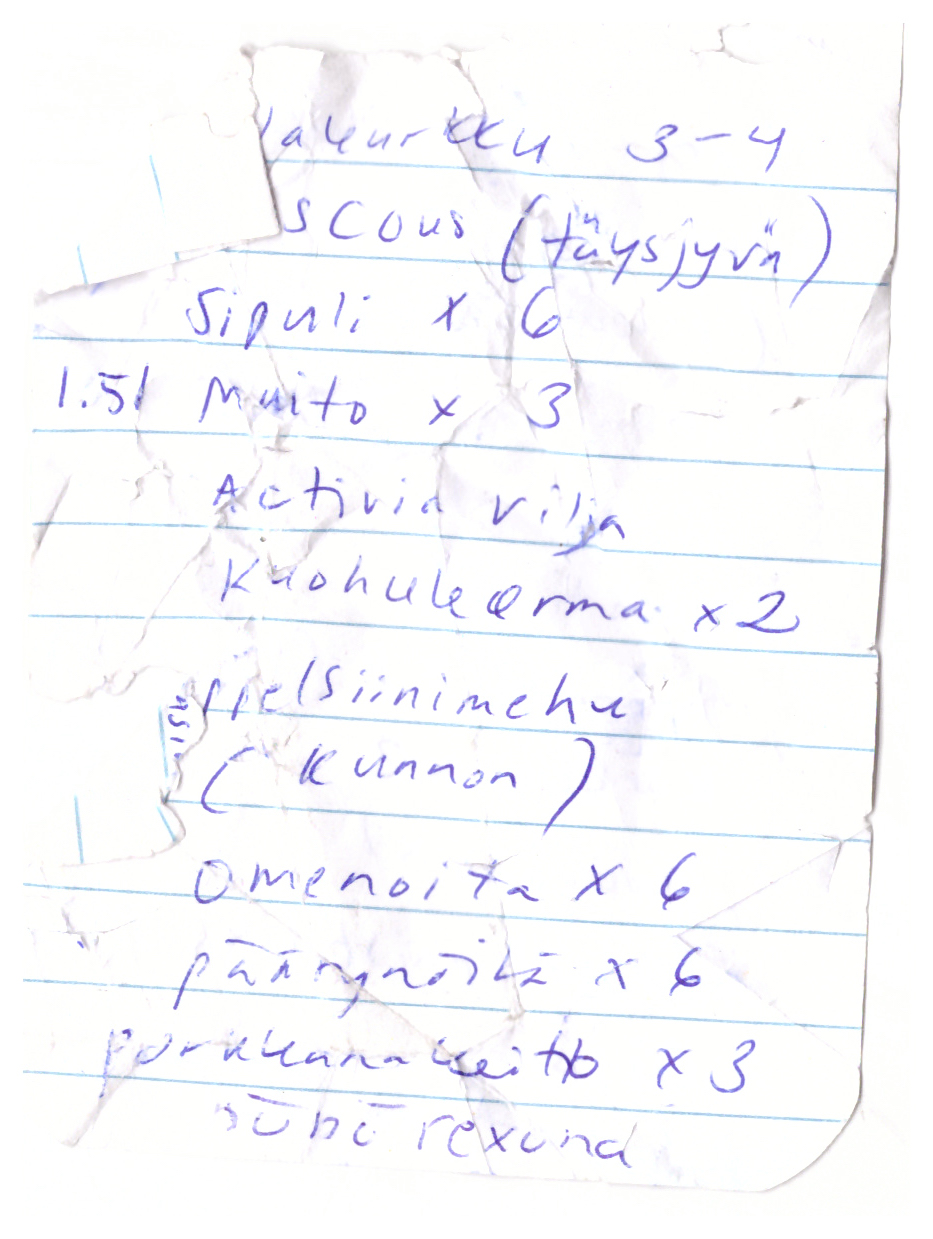 lakurkku 3-4
scous (täysjyvä)
Sipuli x 6
1.5l Maito x 3
Activia vilja
Kuohukerma x2
ppelsiinimehu
(kunnon)
Omenoita x 6
päärynöitä x 6
porkkanakeitto x 3